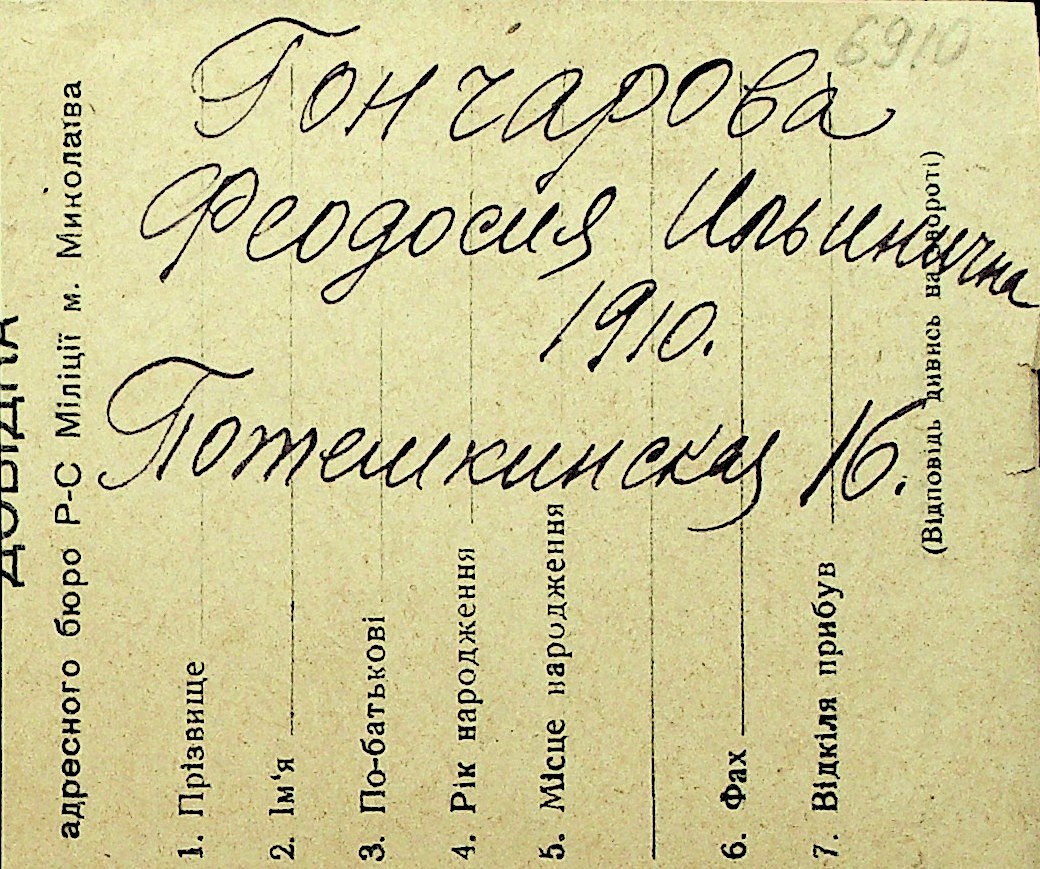 6910
Гончарова
Феодосия Ильинична
1910.
Потемкинская 16.
ДОВІДКА
адресного бюро Р-С Міліції м. Миколаїва
1. Прізвище
2. Ім'я
3. По-батькові
4. Рік народження
5. Місце народження
6. Фах
7. Відкіля прибув
(Відповідь дивись на звороті)